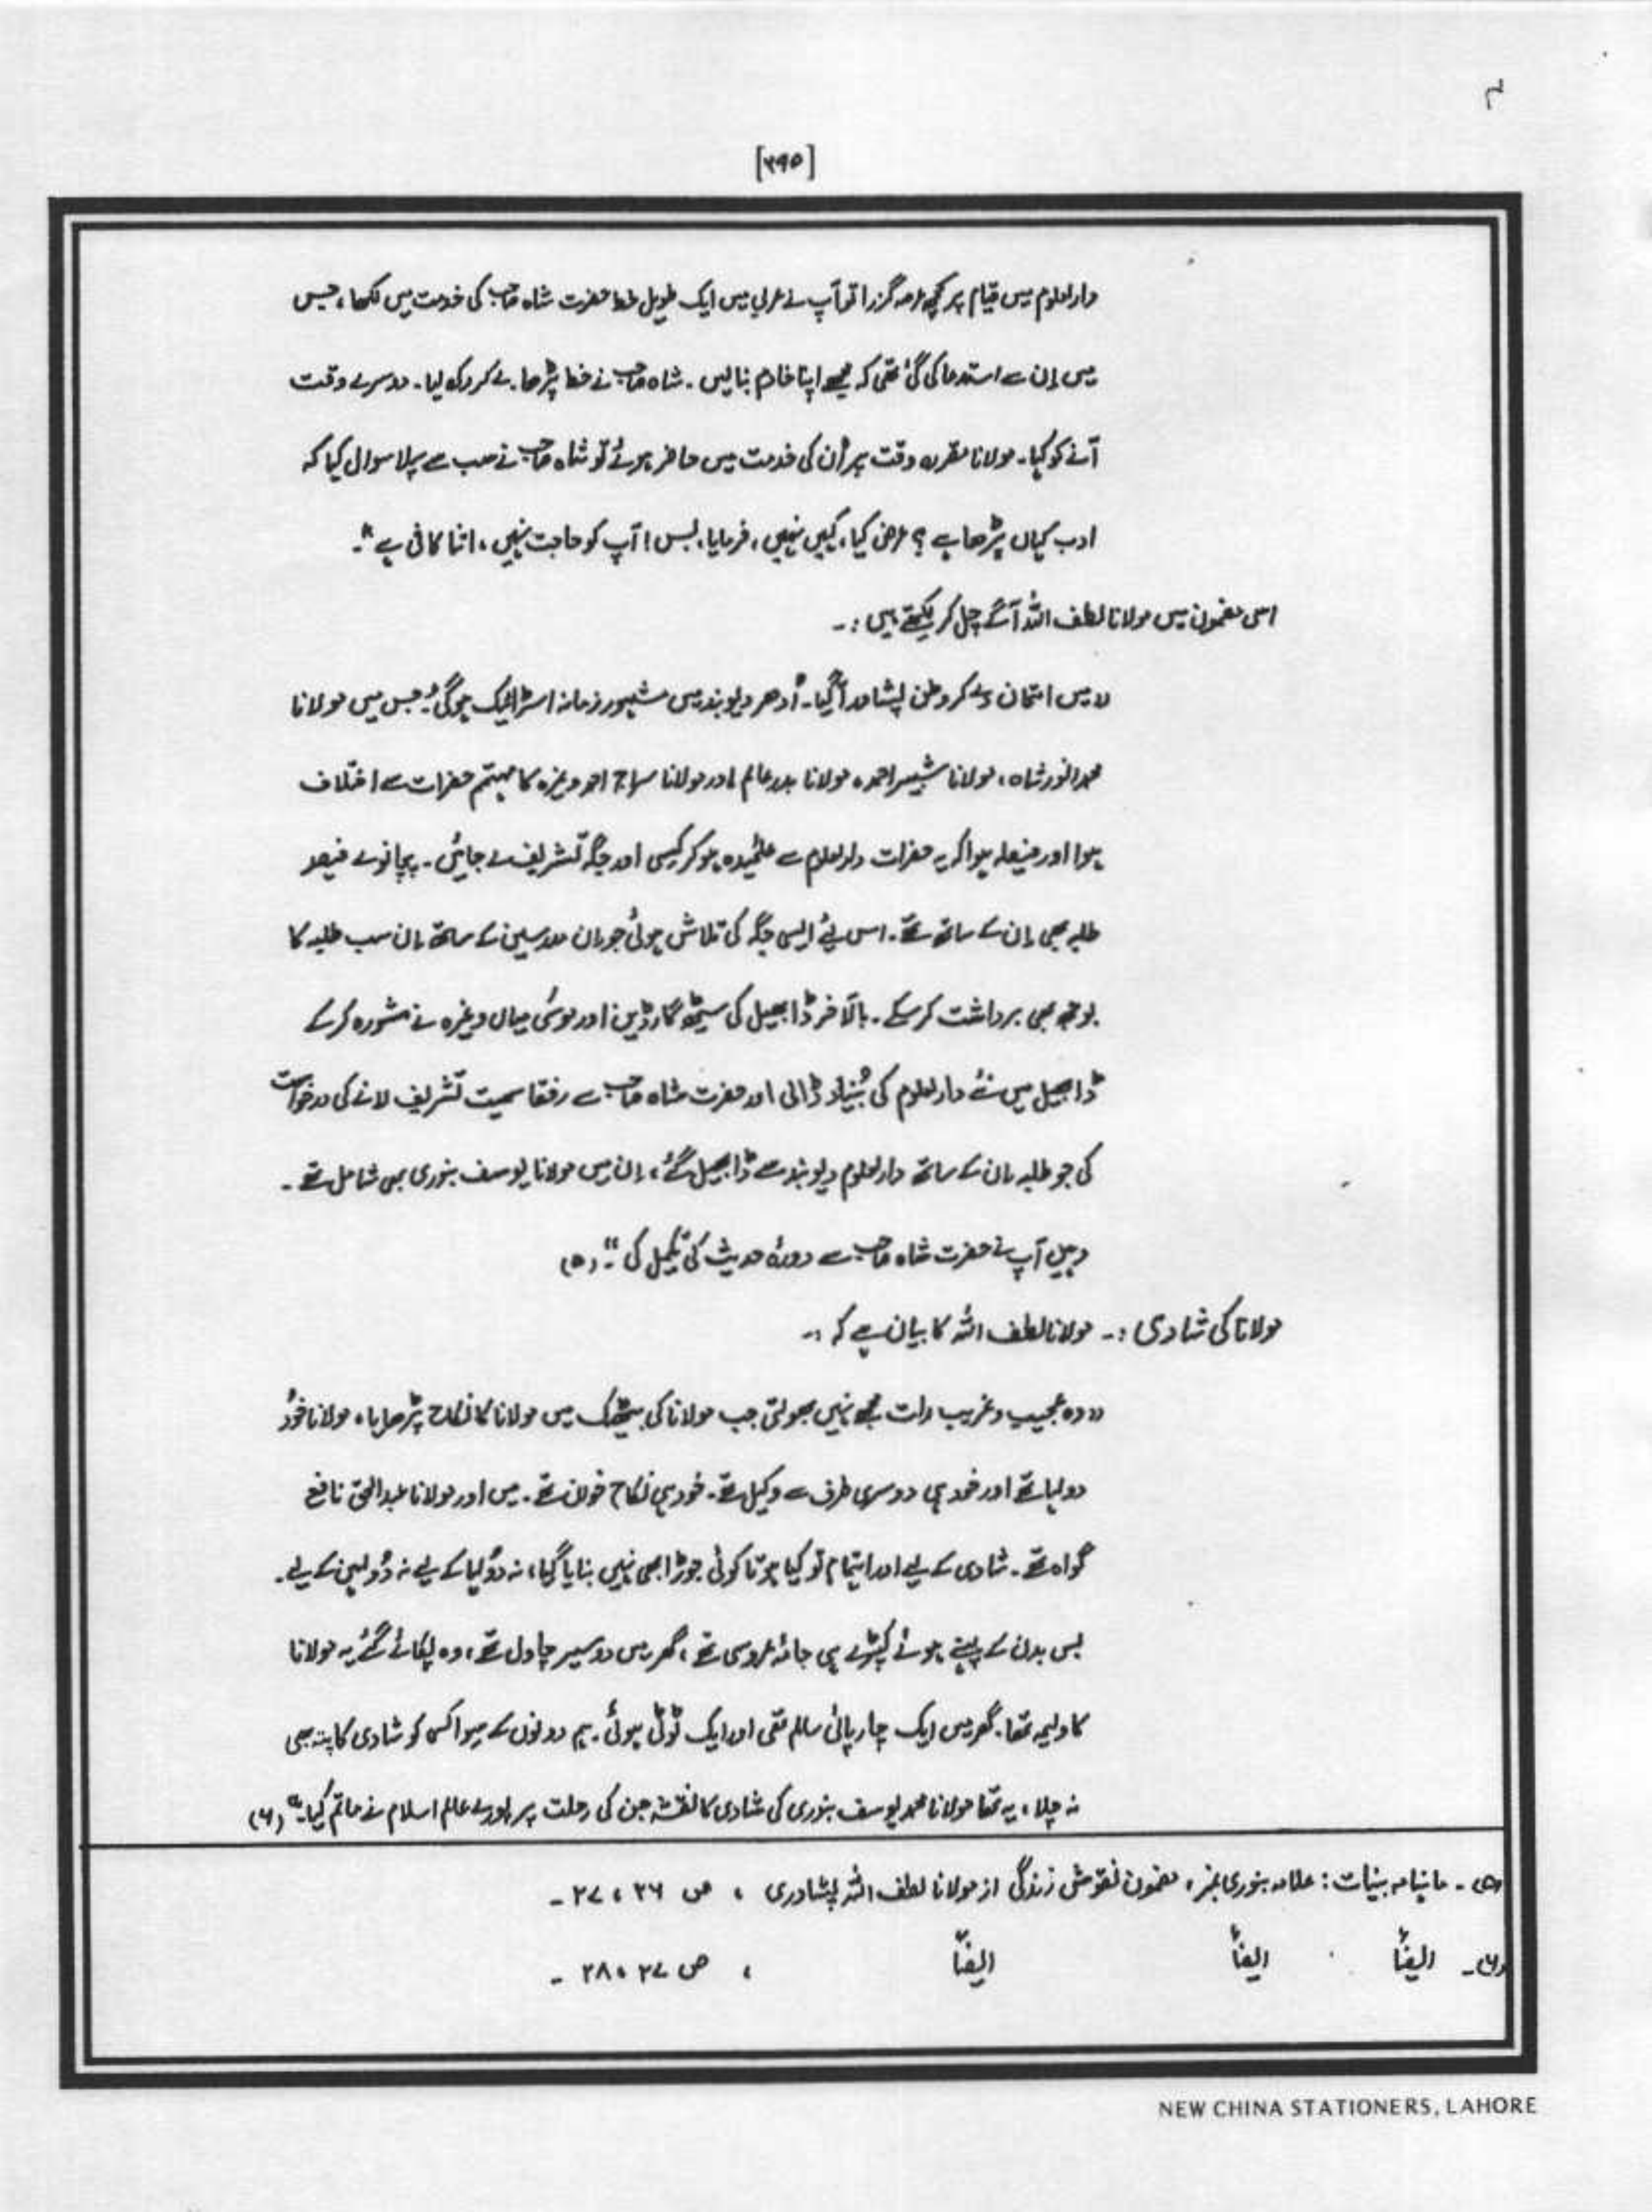 ۴
[۲۹۵]
دارالعلوم میں قیام پر کچھ عرصہ گزرا تو آپ نے عربی میں ایک طویل خط حضرت شاہ صاحب کی خدمت میں لکھا، جس
میں اِن سے استدعا کی گئی تھی کہ مجھے اپنا خادم بنالیں۔ شاہ صاحب نے خط پڑھا۔ لے کر رکھ لیا۔ دوسرے وقت
آنے کو کہا۔ مولانا مقررہ وقت پر اُن کی خدمت میں حاضر ہوئے تو شاہ صاحب نے سب سے پہلا سوال کیا کہ
ادب کہاں پڑھا ہے؟ عرض کیا، کہیں نہیں، فرمایا، بس! آپ کو حاجت نہیں، اتنا کافی ہے"۔
اسی مضمون میں مولانا لطف اللہ آگے چل کر لکھتے ہیں:۔
"میں امتحان دے کر وطن پشاور آگیا۔ اُدھر دیوبند میں مشہور زمانہ اسٹرائیک ہوگئی۔ جس میں مولانا
محمد انور شاہ، مولانا شبیر احمد، مولانا بدر عالم اور مولانا سراج احمد وغیرہ کا مہتمم حضرات سے اختلاف
ہوا اور فیصلہ ہوا کہ یہ حضرات دارالعلوم سے علیٰحدہ ہو کر کسی اور جگہ تشریف لے جائیں۔ پچانوے فیصد
طلبہ بھی اِن کے ساتھ تھے۔ اس لئے ایسی جگہ کی تلاش ہوئی جو اِن مدرسین کے ساتھ اِن سب طلبہ کا
بوجھ بھی برداشت کرسکے۔ بالآخر ڈابھیل کی سیٹھ گارڈین اور موسٰی میاں وغیرہ نے مشورہ کرکے
ڈابھیل میں نئے دارالعلوم کی بُنیاد ڈالی اور حضرت شاہ صاحب سے رفقا سمیت تشریف لانے کی درخواست
کی جو طلبہ اِن کے ساتھ دارالعلوم دیوبند سے ڈابھیل گئے، اِن میں مولانا یوسف بنوری بھی شامل تھے۔
وہیں آپ نے حضرت شاہ صاحب سے دورۂ حدیث کی تکمیل کی"۔ (۵)
مولانا کی شادی:۔ مولانا لطف اللہ کا بیان ہے کہ:۔
"وہ عجیب و غریب رات مجھے نہیں بھولتی جب مولانا کی بیٹھک میں مولانا کا نکاح پڑھایا، مولانا خود
دولہا تھے اور خود ہی دوسری طرف سے وکیل تھے۔ خود ہی نکاح خوان تھے۔ میں اور مولانا عبدالحق نافع
گواہ تھے۔ شادی کے لیے اور اہتمام تو کیا ہوتا کوئی جوڑا بھی نہیں بنایا گیا، نہ دُولہا کے لیے نہ دُولہن کے لیے۔
بس بدن کے پہنے ہوئے کپڑے ہی جامۂ عروسی تھے، گھر میں دو سیر چاول تھے، وہ پکائے گئے یہ مولانا
کا ولیمہ تھا۔ گھر میں ایک چارپائی سالم تھی اور ایک ٹوٹی ہوئی۔ ہم دونوں کے سوا کسی کو شادی کا پتہ بھی
نہ چلا، یہ تھا مولانا محمد یوسف بنوری کی شادی کا نقشہ جن کی رحلت پر پورے عالم اسلام نے ماتم کیا۔" (۶)
(۵)۔ ماہنامہ بینات: علامہ بنوری نمبر، مضمون نقوش زندگی از مولانا لطف اللہ پشاوری، ص ۲۶، ۲۷۔
(۶)۔ ایضاً ایضاً ایضاً، ص ۲۷، ۲۸۔
NEW CHINA STATIONERS, LAHORE